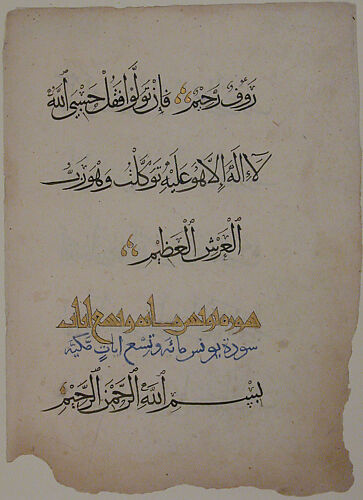 رَؤُفٌ رَّحِيمٌ فَإِنْ تَوَلَّوْا فَقُلْ حَسْبِيَ اللَّهُ
لَا إِلَهَ إِلَّا هُوَ عَلَيْهِ تَوَكَّلْتُ وَهُوَ رَبُّ
الْعَرْشِ الْعَظِيمِ
سورة يونس مائة وتسع ايات
سورة يونس مائة وتسع ايات مكية
بِسْمِ اللَّهِ الرَّحْمَٰنِ الرَّحِيمِ